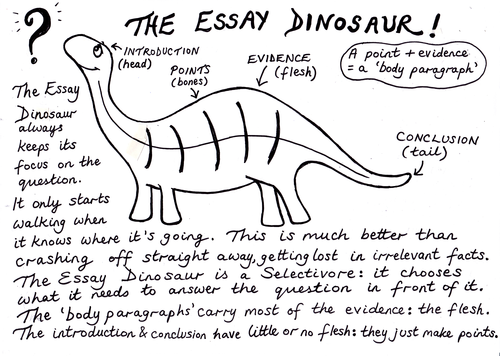 ?
THE ESSAY DINOSAUR!
INTRODUCTION
(head)
POINTS
(bones)
EVIDENCE
(flesh)
A point + evidence
= a 'body paragraph'
CONCLUSION
(tail)
The Essay
Dinosaur
always
keeps its
focus on the
question.
It only starts
walking when
it knows where it's going. This is much better than
crashing off straight away, getting lost in irrelevant facts.
The Essay Dinosaur is a Selectivore: it chooses
what it needs to answer the question in front of it.
The 'body paragraphs' carry most of the evidence: the flesh.
The introduction & conclusion have little or no flesh: they just make points.